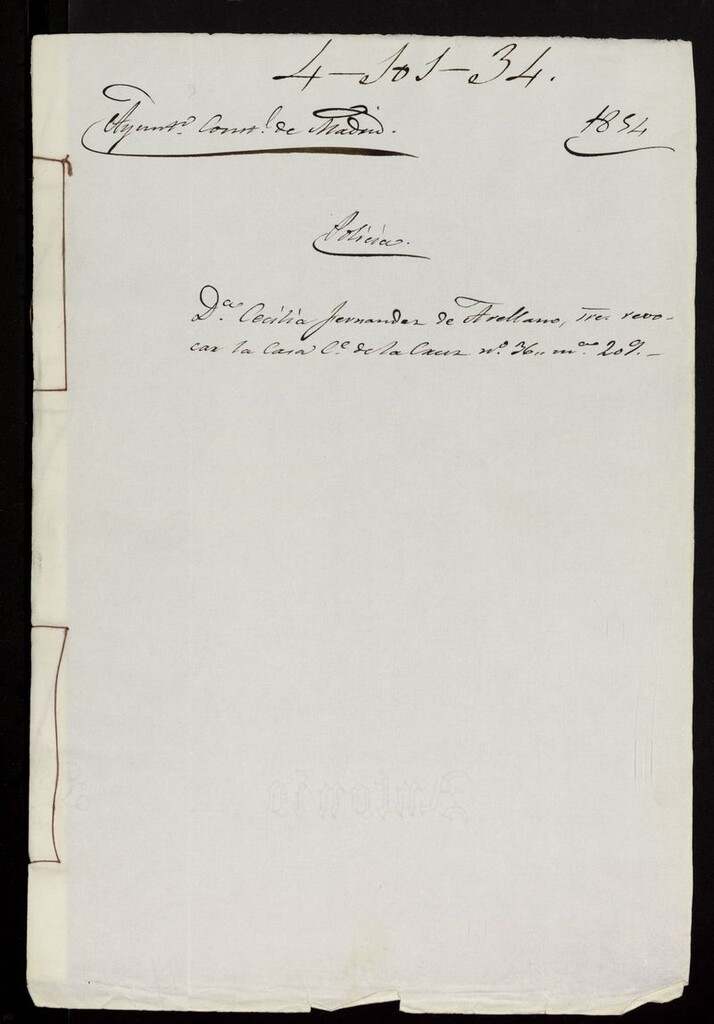 4-101-34.
Ayunt.º Const.l de Madrid.
1854
Policia.
D.ª Cecilia Fernandez de Arellano, revo-
car la Casa C.e de la Cruz n.º 36,, m.na 209.-
Antonio